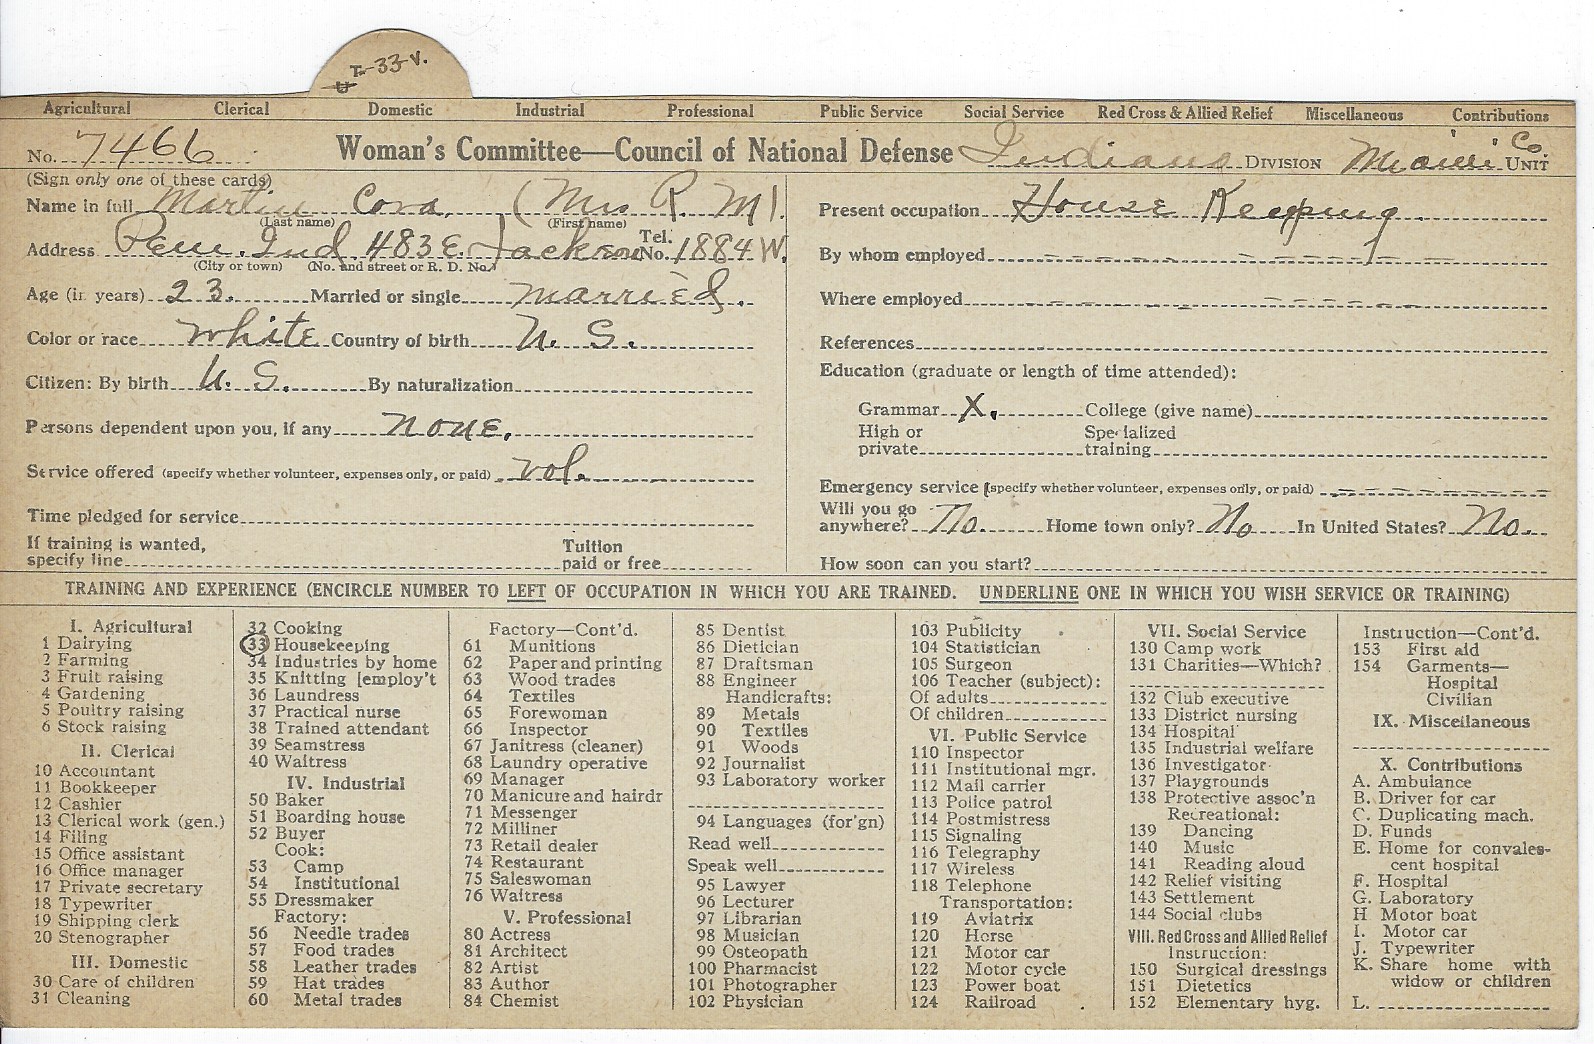 T-33-V.
Agricultural Clerical Domestic Industrial Professional Public Service Social Service Red Cross & Allied Relief Miscellaneous Contributions
No. 7466 Woman's Committee—Council of National Defense Indiana DIVISION Miami Co. UNIT
(Sign only one of these cards)
Name in full Martin Cora, (Mrs R. M).
(Last name) (First name)
Address Peru. Ind 483 E. Jackson Tel. No. 1884 W.
(City or town) (No. and street or R. D. No.)
Age (in years) 23. Married or single married.
Color or race white Country of birth U. S.
Citizen: By birth U. S. By naturalization
Persons dependent upon you, if any none.
Service offered (specify whether volunteer, expenses only, or paid) vol.
Time pledged for service
If training is wanted, specify line Tuition paid or free
Present occupation House Keeping.
By whom employed
Where employed
References
Education (graduate or length of time attended):
Grammar X. College (give name)
High or private Specialized training
Emergency service (specify whether volunteer, expenses only, or paid)
Will you go anywhere? No. Home town only? No In United States? No.
How soon can you start?
TRAINING AND EXPERIENCE (ENCIRCLE NUMBER TO LEFT OF OCCUPATION IN WHICH YOU ARE TRAINED. UNDERLINE ONE IN WHICH YOU WISH SERVICE OR TRAINING)
I. Agricultural
1 Dairying
2 Farming
3 Fruit raising
4 Gardening
5 Poultry raising
6 Stock raising
II. Clerical
10 Accountant
11 Bookkeeper
12 Cashier
13 Clerical work (gen.)
14 Filing
15 Office assistant
16 Office manager
17 Private secretary
18 Typewriter
19 Shipping clerk
20 Stenographer
III. Domestic
30 Care of children
31 Cleaning
32 Cooking
33 Housekeeping
34 Industries by home
35 Knitting [employ't
36 Laundress
37 Practical nurse
38 Trained attendant
39 Seamstress
40 Waitress
IV. Industrial
50 Baker
51 Boarding house
52 Buyer
Cook:
53 Camp
54 Institutional
55 Dressmaker
Factory:
56 Needle trades
57 Food trades
58 Leather trades
59 Hat trades
60 Metal trades
Factory—Cont'd.
61 Munitions
62 Paper and printing
63 Wood trades
64 Textiles
65 Forewoman
66 Inspector
67 Janitress (cleaner)
68 Laundry operative
69 Manager
70 Manicure and hairdr
71 Messenger
72 Milliner
73 Retail dealer
74 Restaurant
75 Saleswoman
76 Waitress
V. Professional
80 Actress
81 Architect
82 Artist
83 Author
84 Chemist
85 Dentist
86 Dietician
87 Draftsman
88 Engineer
Handicrafts:
89 Metals
90 Textiles
91 Woods
92 Journalist
93 Laboratory worker
94 Languages (for'gn)
Read well
Speak well
95 Lawyer
96 Lecturer
97 Librarian
98 Musician
99 Osteopath
100 Pharmacist
101 Photographer
102 Physician
103 Publicity
104 Statistician
105 Surgeon
106 Teacher (subject):
Of adults
Of children
VI. Public Service
110 Inspector
111 Institutional mgr.
112 Mail carrier
113 Police patrol
114 Postmistress
115 Signaling
116 Telegraphy
117 Wireless
118 Telephone
Transportation:
119 Aviatrix
120 Horse
121 Motor car
122 Motor cycle
123 Power boat
124 Railroad
VII. Social Service
130 Camp work
131 Charities—Which?
132 Club executive
133 District nursing
134 Hospital
135 Industrial welfare
136 Investigator
137 Playgrounds
138 Protective assoc'n
Recreational:
139 Dancing
140 Music
141 Reading aloud
142 Relief visiting
143 Settlement
144 Social clubs
VIII. Red Cross and Allied Relief
Instruction:
150 Surgical dressings
151 Dietetics
152 Elementary hyg.
Instruction—Cont'd.
153 First aid
154 Garments—
Hospital
Civilian
IX. Miscellaneous
X. Contributions
A. Ambulance
B. Driver for car
C. Duplicating mach.
D. Funds
E. Home for convales-
cent hospital
F. Hospital
G. Laboratory
H Motor boat
I. Motor car
J. Typewriter
K. Share home with
widow or children
L.